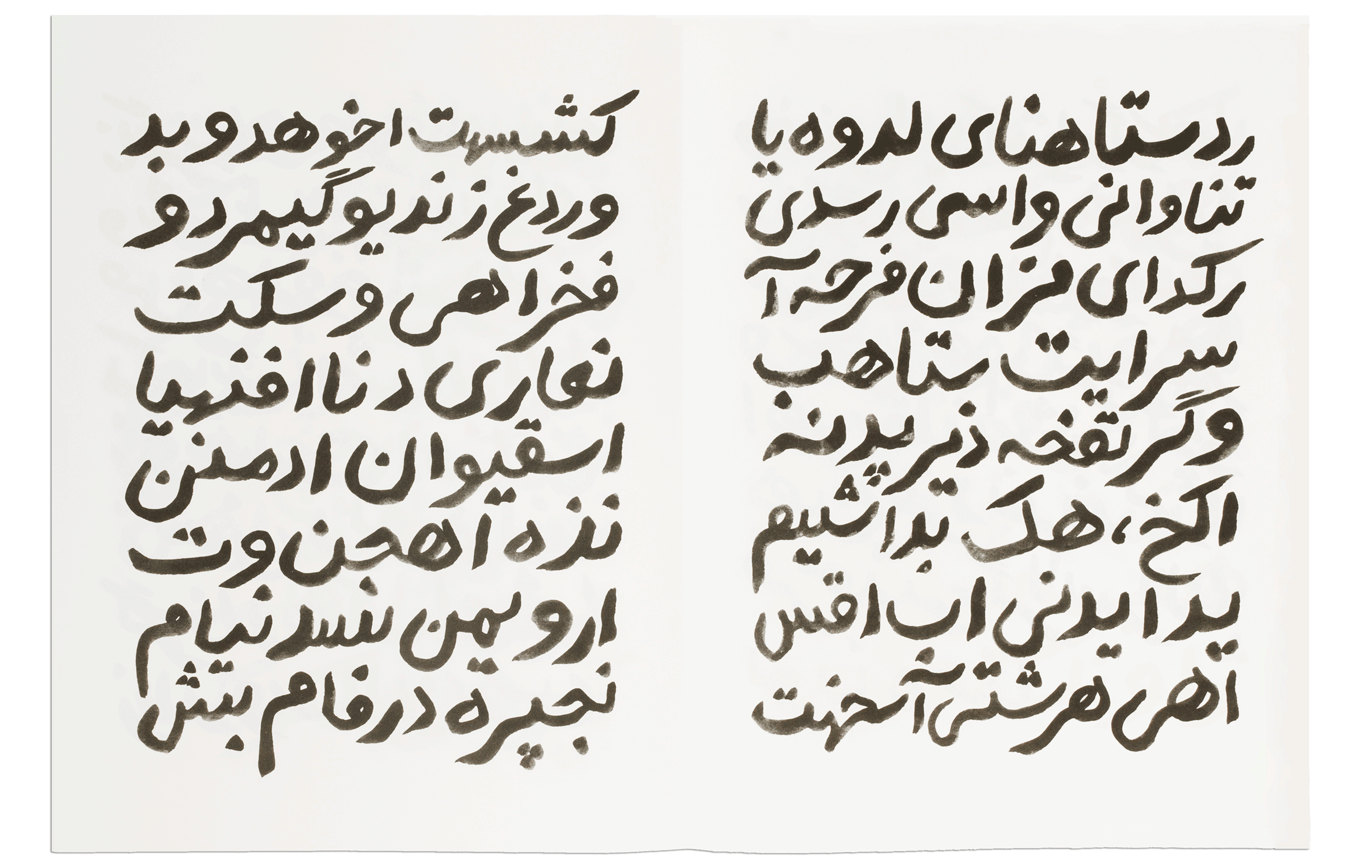 ردستاهنای لدوه یا
تناوانی واسی رسدی
رکدای فزان فرحه آ
سرایت ستاهب
وگر تفخه ذیر پدنه
اکخ، هک بدا شییم
یدا یدنی اب اقس
اهی هرشتی آسخهت
کشبسهت اخو هدو بد
وردغ زندیو گیهردو
فخر اهی وسکت
نعاری دناافنهیا
اسقیوان ادمنن
نذه اهجن وت
ارویمن بنسد نیام
نجیره درفام بیش